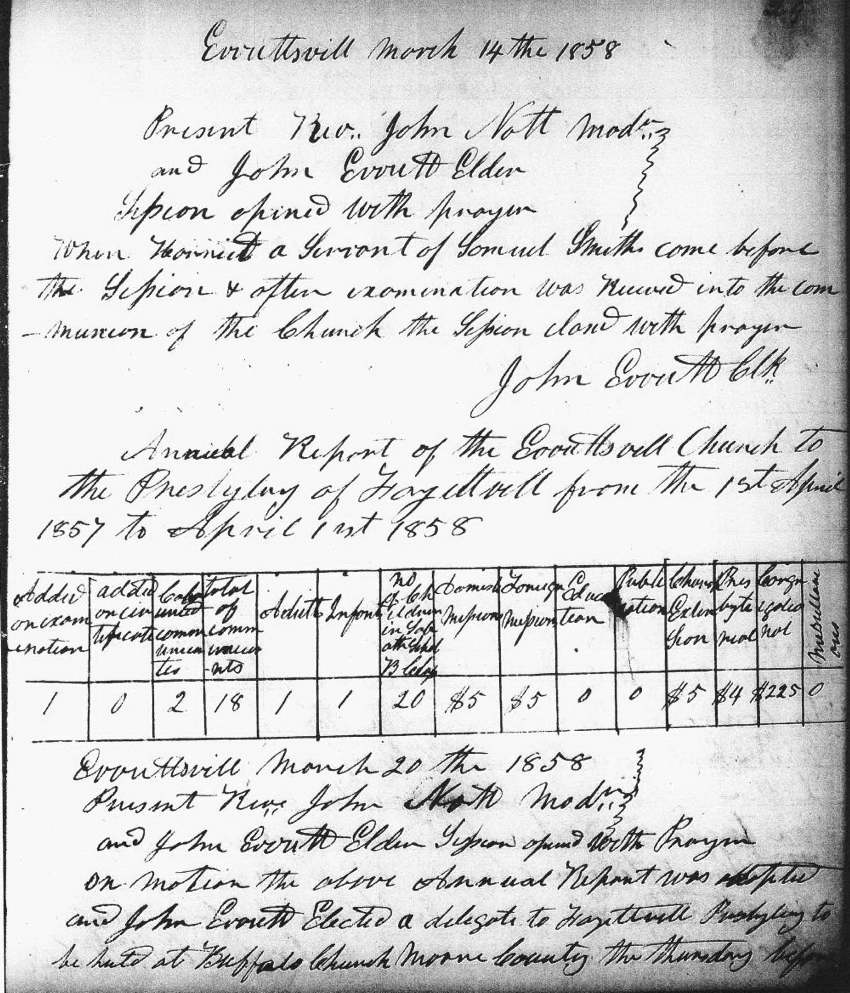 Everettsvill March 14 the 1858
Present Rev. John Nott Modr.
and John Everett Elder
Session opened with prayer
When Harriet a Servant of Samuel Smiths come before
the Session & after examination was Received into the com
-munion of the Church the Session closed with prayer
John Everett Clk
Annual Report of the Everettsvill Church to
the Presbytery of Fayettvill from the 1st April
1857 to April 1st 1858
Added on exam ination
added on cer tificate
Colo ured comm unica tes
total of comm unica nts
Adults
Infants
no of Ch ildren in Sab ath Schol B Class
Domestic Missions
Foreign Mission
Educa tion
Public ation
Church Exten sion
Pres byte rial
Congr egatio nal
Miscellane ous
1 0 2 18 1 1 20 $5 $5 0 0 $5 $4 $225 0
Everettsvill March 20 the 1858
Present Rev. John Nott Modr.
and John Everett Elder Session opened with Prayer
on motion the above Annual Report was adopted
and John Everett Elected a delegate to Fayettvill Presbytery to
be held at Buffalo Church Moore County the thursday before